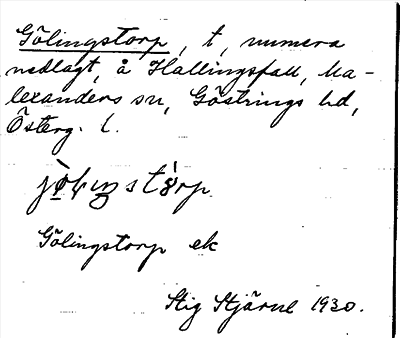 Gölingstorp, t, numera
nedlagt, å Hallingsfall, Ma-
lexanders sn, Göstrings hd,
Österg. l.
Gölingstorp ek
Stig Stjärne 1930.